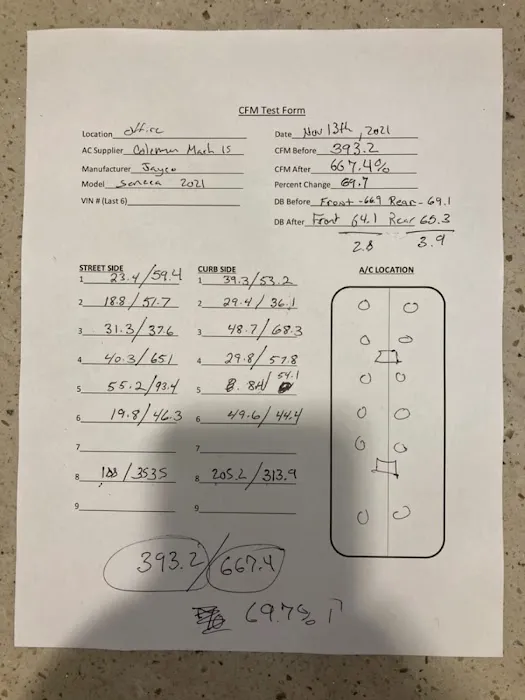 CFM Test Form
Location office
Date Nov 13th, 2021
AC Supplier Coleman Mach 15
CFM Before 393.2
Manufacturer Jayco
CFM After 667.4%
Model Seneca 2021
Percent Change 69.7
VIN # (Last 6)
DB Before Front - 66.9 Rear - 69.1
DB After Front 64.1 Rear 65.3
2.8 3.9
STREET SIDE
1 23.4/59.4
2 18.8/57.7
3 31.3/37.6
4 40.3/65.1
5 55.2/93.4
6 19.8/46.3
7
8 188/353.5
9
CURB SIDE
1 39.3/53.2
2 29.4/36.1
3 48.7/68.3
4 29.8/57.8
5 54.1
6 49.6/44.4
7
8 205.2/313.9
9
A/C LOCATION
393.2/667.4
69.7% ↑